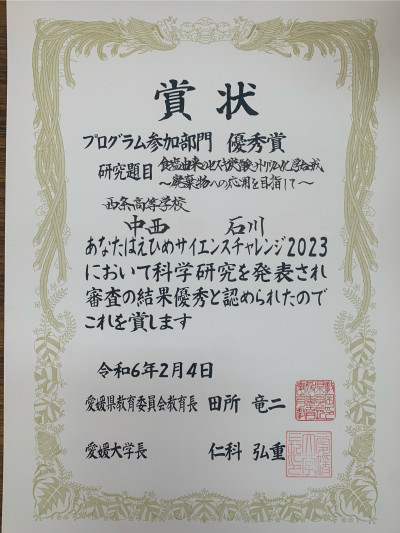 賞状
プログラム参加部門 優秀賞
研究題目 食塩由来のセスキ炭酸ナトリウム化学合成
～廃棄物への応用を目指して～
西条高等学校
中西 石川
あなたはえひめサイエンスチャレンジ2023
において科学研究を発表され
審査の結果優秀と認められたので
これを賞します
令和6年2月4日
愛媛県教育委員会教育長 田所 竜二
愛媛大学長 仁科 弘重